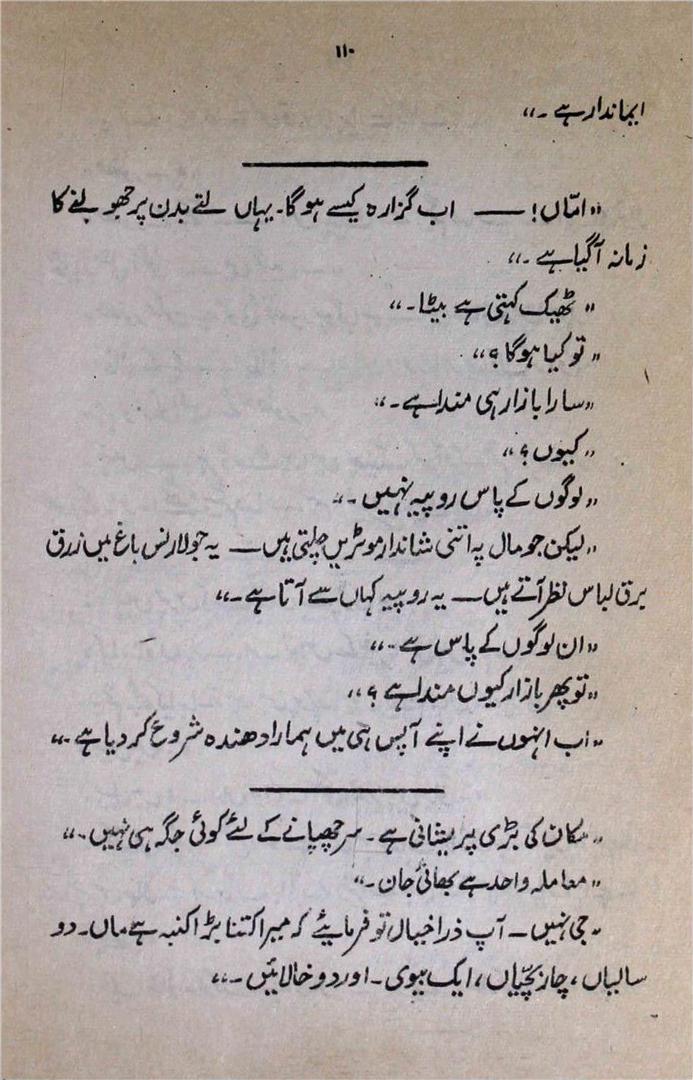 ۱۱۰
ایماندار ہے۔"
"امّاں! — اب گزارہ کیسے ہوگا۔ یہاں لتے بدن پر جھولنے کا
زمانہ آگیا ہے۔"
"ٹھیک کہتی ہے بیٹا۔"
"تو کیا ہوگا؟"
"سارا بازار ہی مندا ہے۔"
"کیوں؟"
"لوگوں کے پاس روپیہ نہیں۔"
"لیکن جو مال پہ اتنی شاندار موٹریں چلتی ہیں — یہ جو لارنس باغ میں زرق
برق لباس نظر آتے ہیں — یہ روپیہ کہاں سے آتا ہے۔"
"ان لوگوں کے پاس ہے۔"
"تو پھر بازار کیوں مندا ہے؟"
"اب انہوں نے اپنے آپس ہی میں ہمارا دھندہ شروع کر دیا ہے۔"
"مکان کی بڑی پریشانی ہے۔ سر چھپانے کے لئے کوئی جگہ ہی نہیں۔"
"معاملہ واحد ہے بھائی جان۔"
"جی نہیں — آپ ذرا خیال تو فرمایئے کہ میرا کتنا بڑا کنبہ ہے ماں۔ دو
سالیاں، چار بچّیاں، ایک بیوی۔ اور دو خالائیں۔"